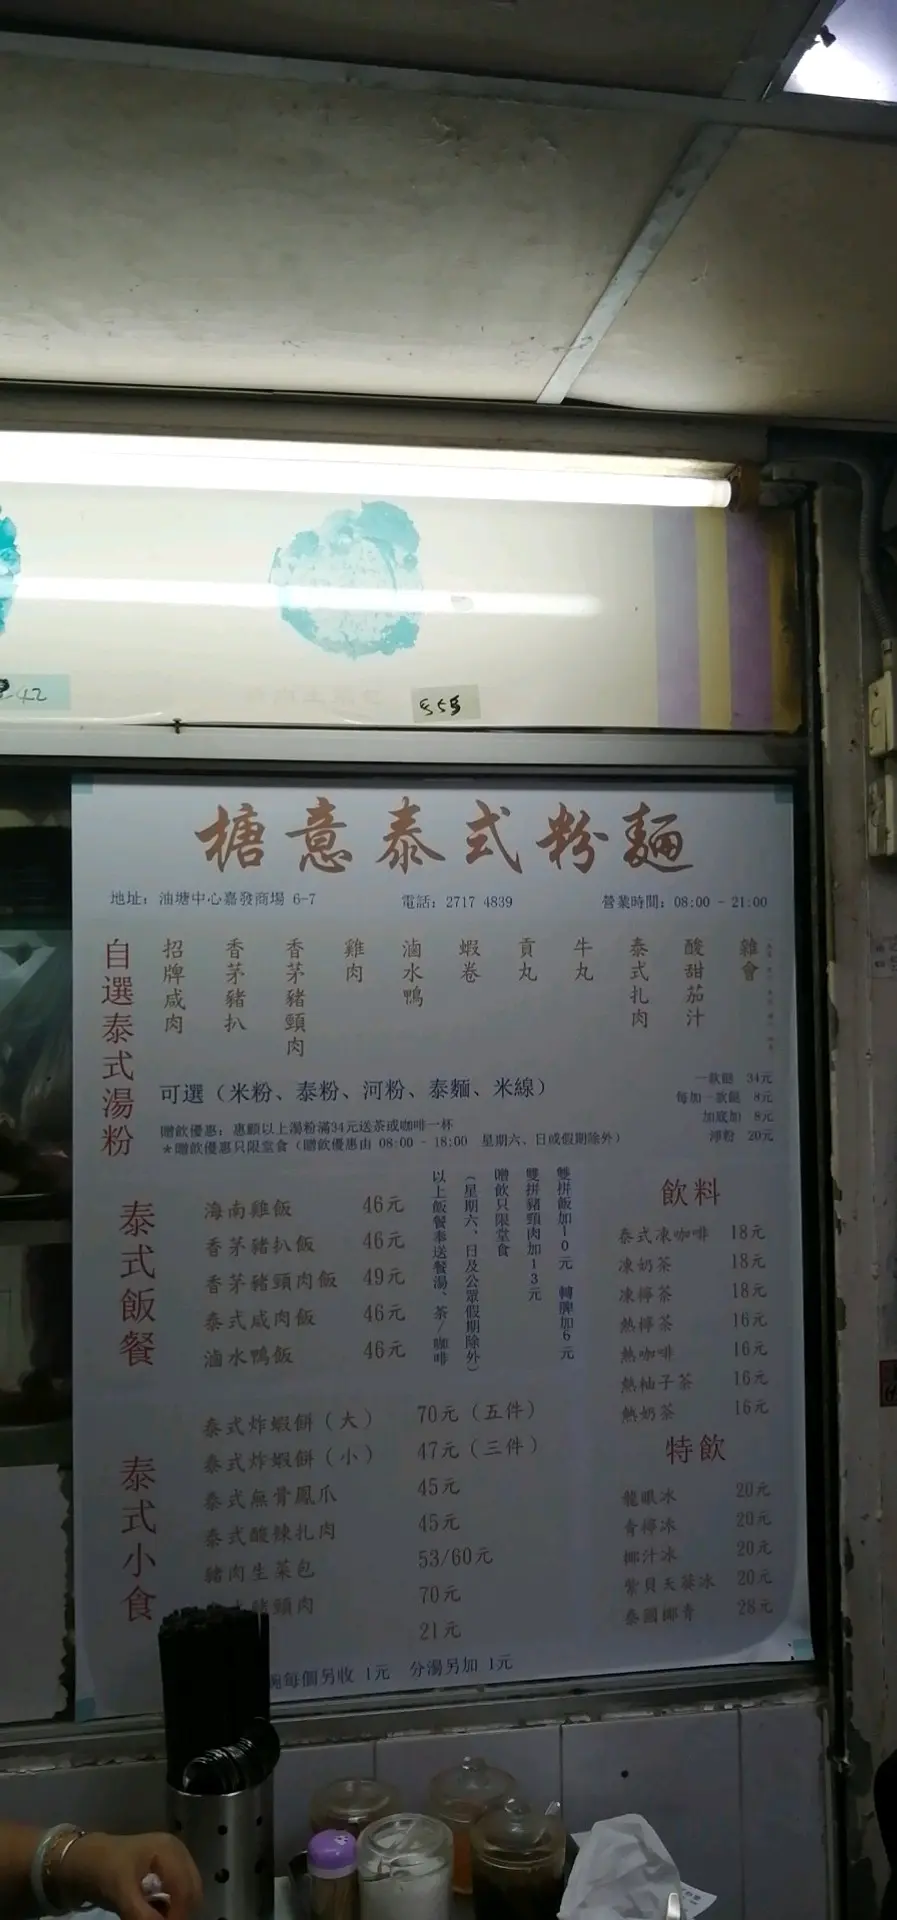 42
$55
榶意泰式粉麵
地址：油塘中心嘉發商場 6-7 電話：2717 4839 營業時間：08:00 - 21:00
自選泰式湯粉
招牌咸肉
香茅豬扒
香茅豬頸肉
雞肉
滷水鴨
蝦卷
貢丸
牛丸
泰式扎肉
酸甜茄汁
雜會
可選（米粉、泰粉、河粉、泰麵、米線）
一款餸 34元
每加一款餸 8元
加底加 8元
淨粉 20元
贈飲優惠：惠顧以上湯粉滿34元送茶或咖啡一杯
＊贈飲優惠只限堂食（贈飲優惠由 08:00 - 18:00 星期六、日或假期除外）
泰式飯餐
海南雞飯 46元
香茅豬扒飯 46元
香茅豬頸肉飯 49元
泰式咸肉飯 46元
滷水鴨飯 46元
雙拼飯加10元 轉牌加6元
雙拼豬頸肉加13元
贈飲只限堂食
（星期六、日及公眾假期除外）
以上飯餐奉送餐湯、茶/咖啡
泰式小食
泰式炸蝦餅（大） 70元（五件）
泰式炸蝦餅（小） 47元（三件）
泰式無骨鳳爪 45元
泰式酸辣扎肉 45元
豬肉生菜包 53/60元
豬頸肉 70元
21元
碗每個另收 1元 分湯另加 1元
飲料
泰式凍咖啡 18元
凍奶茶 18元
凍檸茶 18元
熱檸茶 16元
熱咖啡 16元
熱柚子茶 16元
熱奶茶 16元
特飲
龍眼冰 20元
青檸冰 20元
椰汁冰 20元
紫貝天葵冰 20元
泰國椰青 28元